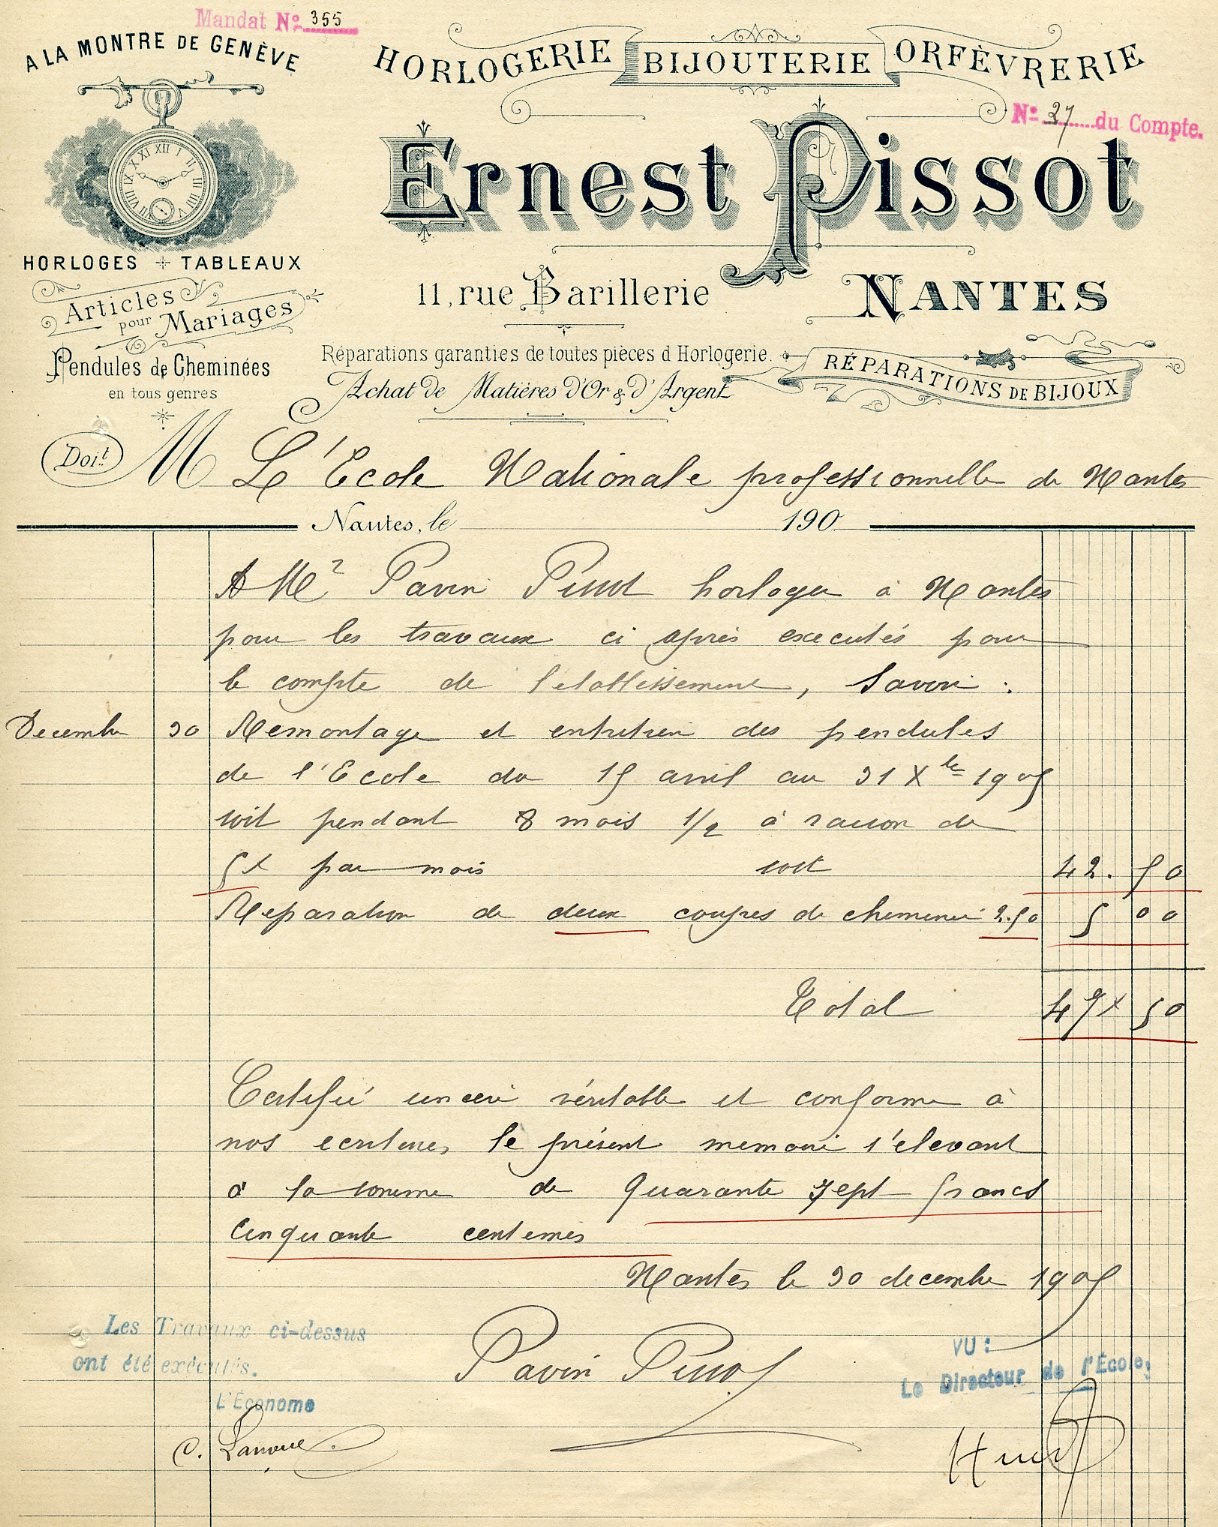 Mandat Nº 355
A LA MONTRE DE GENÈVE
HORLOGERIE BIJOUTERIE ORFÈVRERIE
Nº 27 du Compte.
Ernest Pissot
HORLOGES + TABLEAUX
11, rue Barillerie NANTES
Articles pour Mariages
Pendules de Cheminées
en tous genres
Réparations garanties de toutes pièces d'Horlogerie.
Achat de Matières d'Or & d'Argent
RÉPARATIONS DE BIJOUX
Doit M L'Ecole Nationale professionnelle de Nantes
Nantes, le 190
A Mr Pavin Pissot horloger à Nantes
pour les travaux ci après executés pour
le compte de l'etablissement, Savoir :
Decembre 30 Remontage et entretien des pendules
de l'Ecole du 15 avril au 31 Xbre 1905
soit pendant 8 mois 1/2 à raison de
5f par mois soit 42. 50
Reparation de deux coupes de cheminée 2.50 5 00
Total 47f 50
Certifié sincère véritable et conforme à
nos ecritures, le présent memoire s'elevant
à la somme de Quarante sept francs
Cinquante centimes
Nantes le 30 decembre 1905
Les Travaux ci-dessus
ont été exécutés.
L'Econome
C. Lanoue
Pavin Pissot
VU :
Le Directeur de l'École,